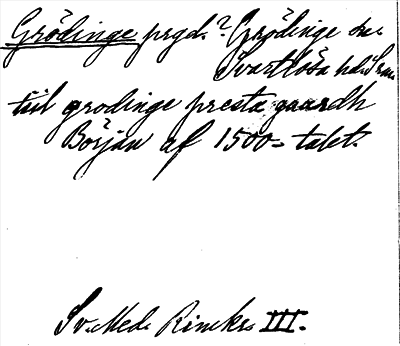 Grödinge prgd.? Grödinge sn.
Svartlösa hd. Srm.
till grodinge presta gaardh
Början af 1500-talet.
Sv. Med. Rimekr. III.